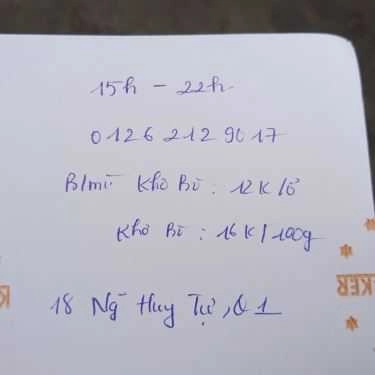 15h - 22h
0126 212 9017
B/mì Khô Bò : 12K/ổ
Khô Bò : 16K/100g
18 Ng Huy Tự, Q1
KER